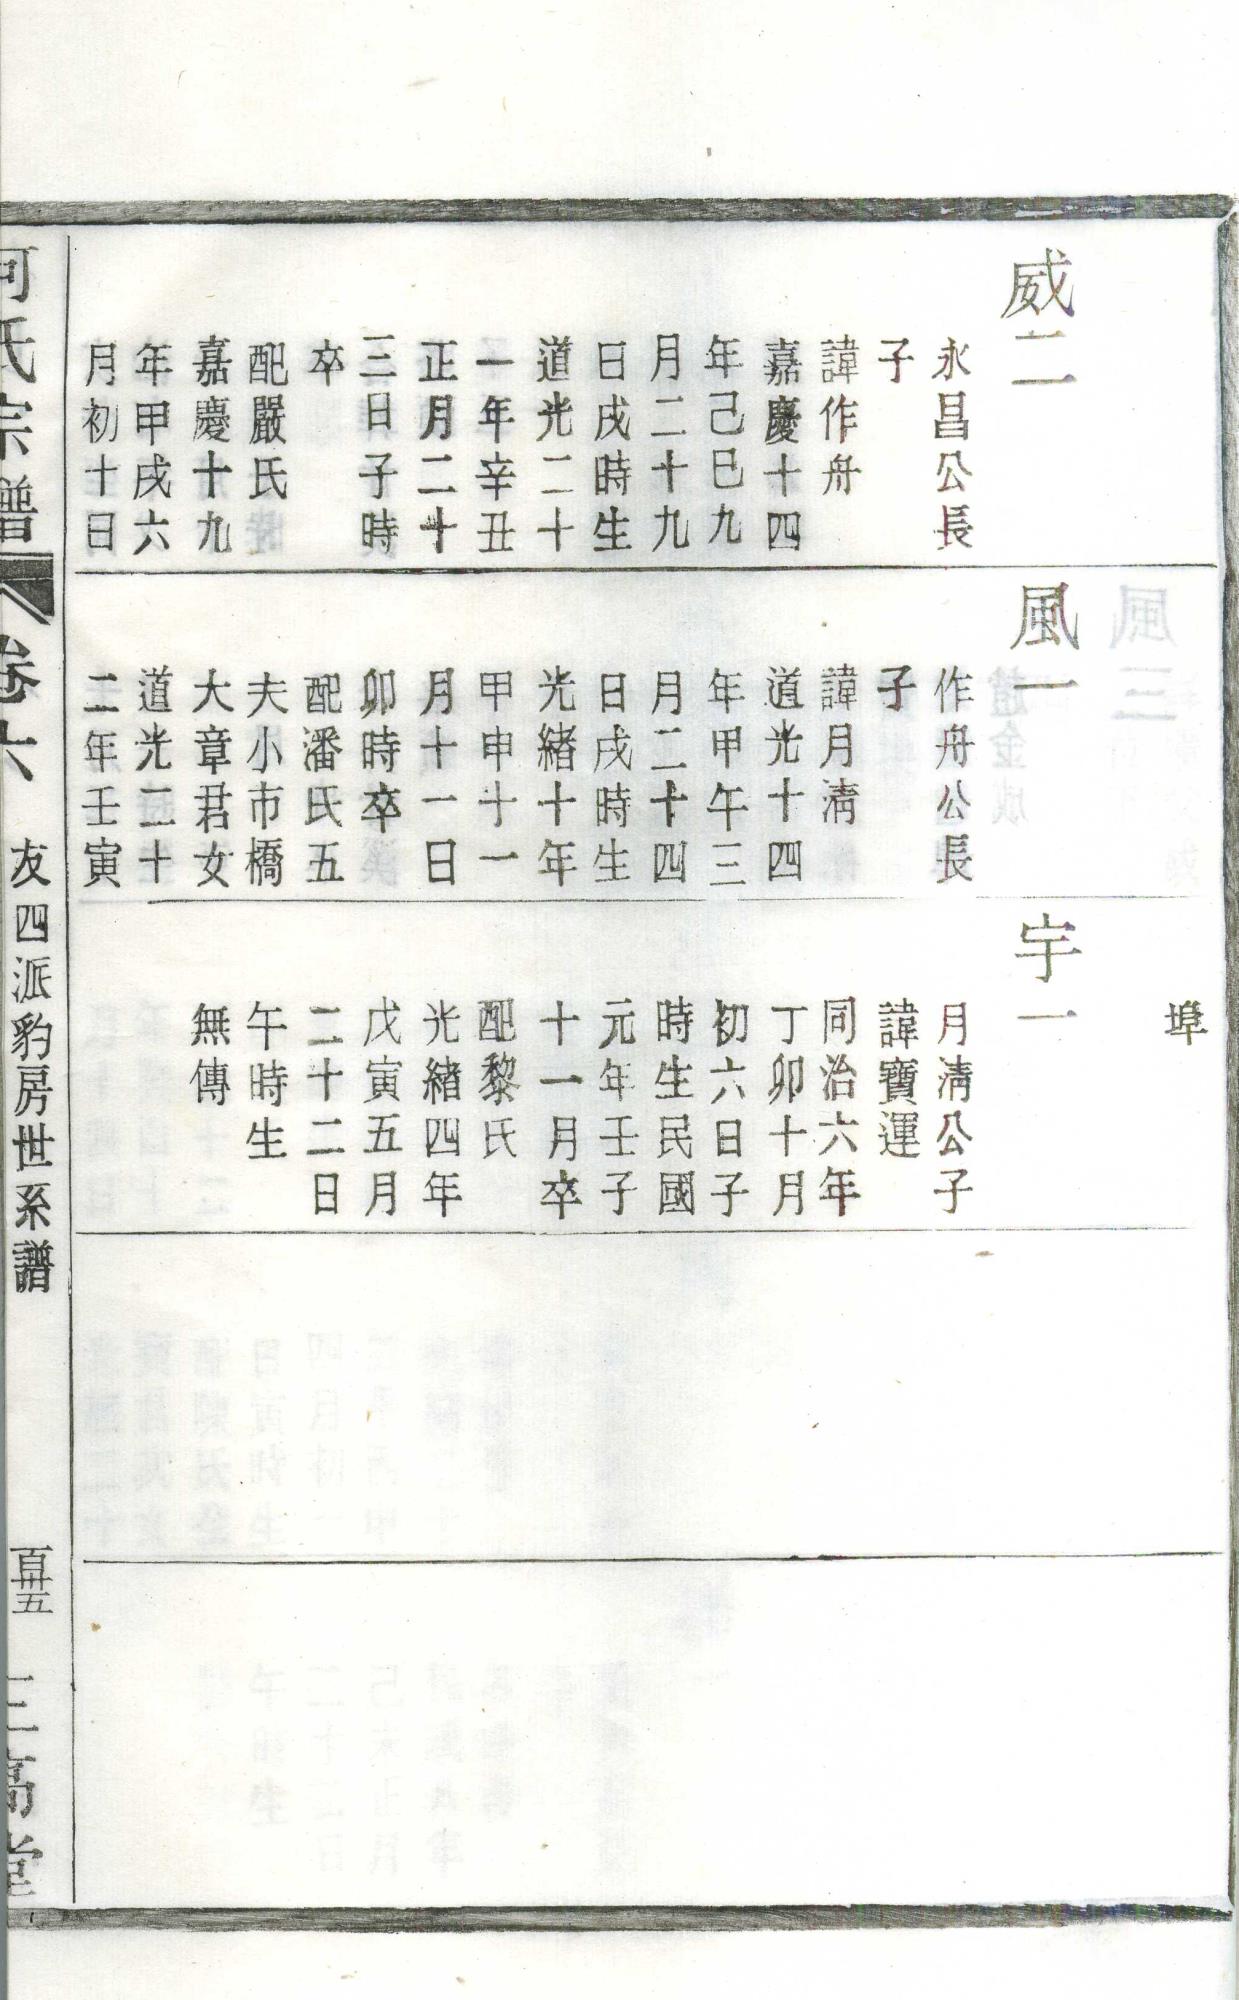 威二
永昌公長
子
諱作舟
嘉慶十四
年己巳九
月二十九
日戌時生
道光二十
一年辛丑
正月二十
三日子時
卒
配嚴氏
嘉慶十九
年甲戌六
月初十日
風一
作舟公長
子
諱月淸
道光十四
年甲午三
月二十四
日戌時生
光緒十年
甲申十一
月十一日
卯時卒
配潘氏五
夫小市橋
大章君女
道光二十
二年壬寅
埠
宇一
月淸公子
諱寶運
同治六年
丁卯十月
初六日子
時生民國
元年壬子
十一月卒
配黎氏
光緒四年
戊寅五月
二十二日
午時生
無傳
氏宗譜
卷六
友四派豹房世系譜
百卅五
三高堂